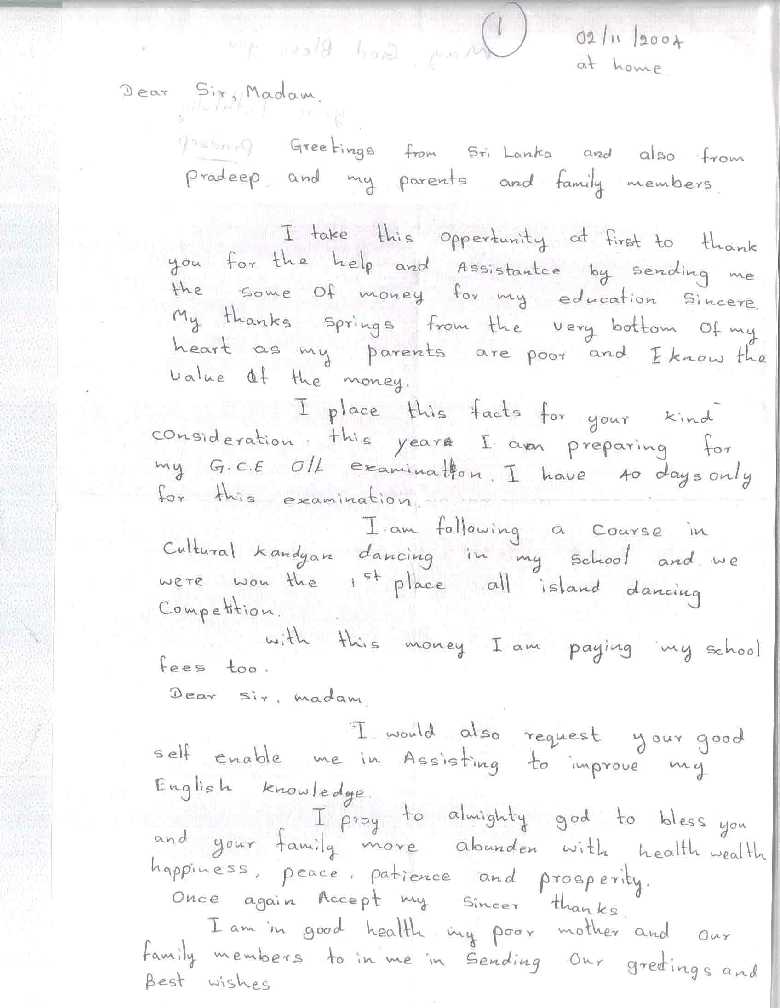 1
02/11/2004
at home
Dear Sir, Madam.
Greetings from Sri Lanka and also from
pradeep and my parents and family members.
I take this oppertunity at first to thank
you for the help and Assistantce by sending me
the some of money for my education sincere.
My thanks springs from the very bottom of my
heart as my parents are poor and I know the
value of the money.
I place this facts for your kind
consideration. this year I am preparing for
my G.C.E O/L examination. I have 40 days only
for this examination.
I am following a course in
Cultural kandyan dancing in my school and we
were won the 1st place all island dancing
Competition.
with this money I am paying my school
fees too.
Dear sir, madam
I would also request your good
self enable me in Assisting to improve my
English knowledge.
I pray to almighty god to bless you
and your family more abunden with health wealth
happiness, peace, patience and prosperity.
Once again Accept my sincer thanks.
I am in good health my poor mother and our
family members to in me in sending our greetings and
Best wishes